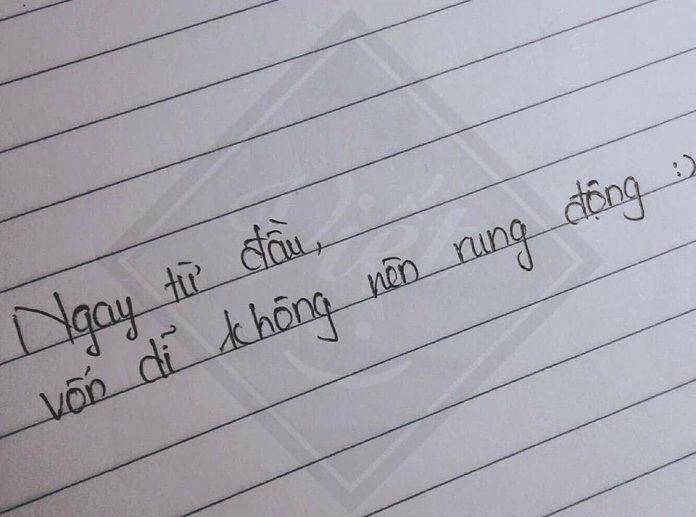 Ngay từ đầu,
vốn dĩ không nên rung động :)
Viết